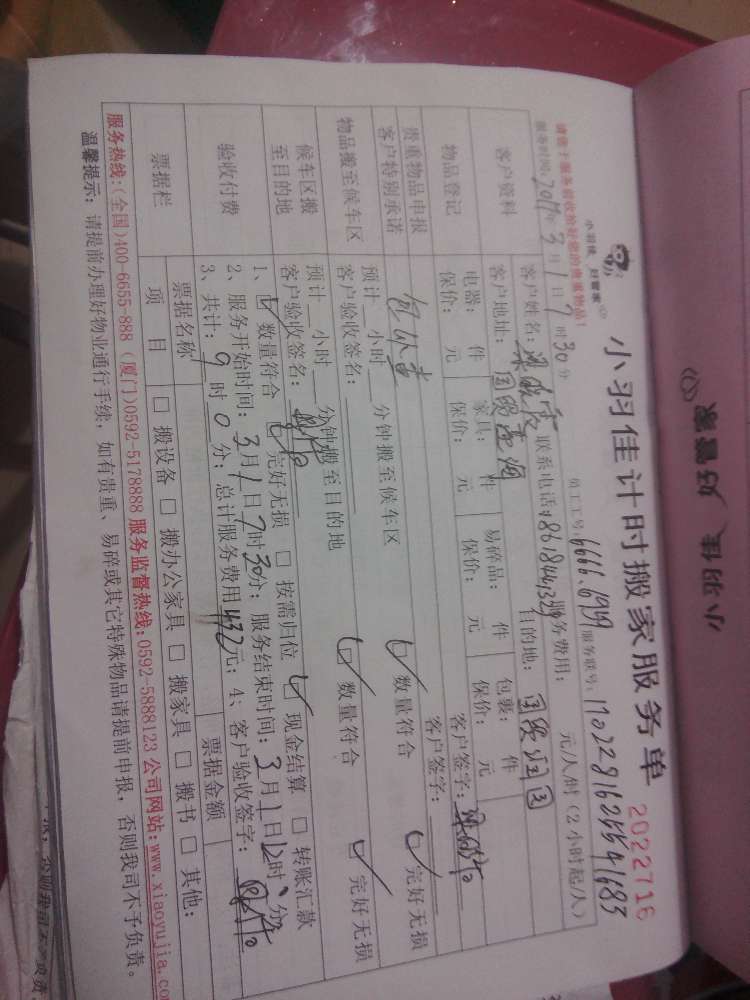 小羽佳 好管家
小羽佳 好管家
小羽佳计时搬家服务单 2022716
请您于服务前收拾好您的贵重物品！
员工工号：6666.6959 服务联号：
服务时间：2017年3月1日7时30分
客户资料
客户姓名： 联系电话： 服务费用： 元/人/时（2小时起/人）
客户地址： 目的地：
物品登记
电器： 件 家具： 件 易碎品： 件 包裹： 件
保价： 元 保价： 元 保价： 元 保价： 元
客户签字：
贵重物品申报
客户特别承诺
客户签字：
物品搬至候车区
预计 小时 分钟搬至候车区 数量符合 完好无损
客户验收签名：
候车区搬
至目的地
预计 小时 分钟搬至目的地 数量符合 完好无损
客户验收签名：
验收付费
1、 数量符合 完好无损 □ 按需归位 现金结算 □ 转账汇款
2、服务开始时间：3月1日7时30分；服务结束时间：3月1日12时 分
3、共计：9时0分；总计服务费用432元；4、客户验收签字：
票据栏
票据名称 票据金额
项 目 □ 搬设备 □ 搬办公家具 □ 搬家具 □ 搬书 □ 其他：
服务热线：(全国)400-6655-888 (厦门)0592-5178888 服务监督热线：0592-5888123 公司网站：www.xiaoyujia.co
温馨提示：请提前办理好物业通行手续，如有贵重、易碎或其它特殊物品请提前申报，否则我司不予负责。
否则我司不予负责